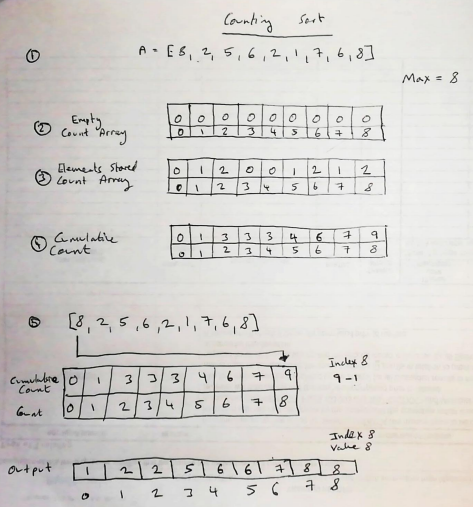 Counting Sort
① A = [8, 2, 5, 6, 2, 1, 7, 6, 8]
Max = 8
② Empty Count Array
0 0 0 0 0 0 0 0 0
0 1 2 3 4 5 6 7 8
③ Elements Stored Count Array
0 1 2 0 0 1 2 1 2
0 1 2 3 4 5 6 7 8
④ Cumulative Count
0 1 3 3 3 4 6 7 9
0 1 2 3 4 5 6 7 8
⑤ [8, 2, 5, 6, 2, 1, 7, 6, 8]
Cumulative Count 0 1 3 3 3 4 6 7 9
Index 8
9-1
Count 0 1 2 3 4 5 6 7 8
Index 8
Value 8
Output 1 2 2 5 6 6 7 8 8
0 1 2 3 4 5 6 7 8